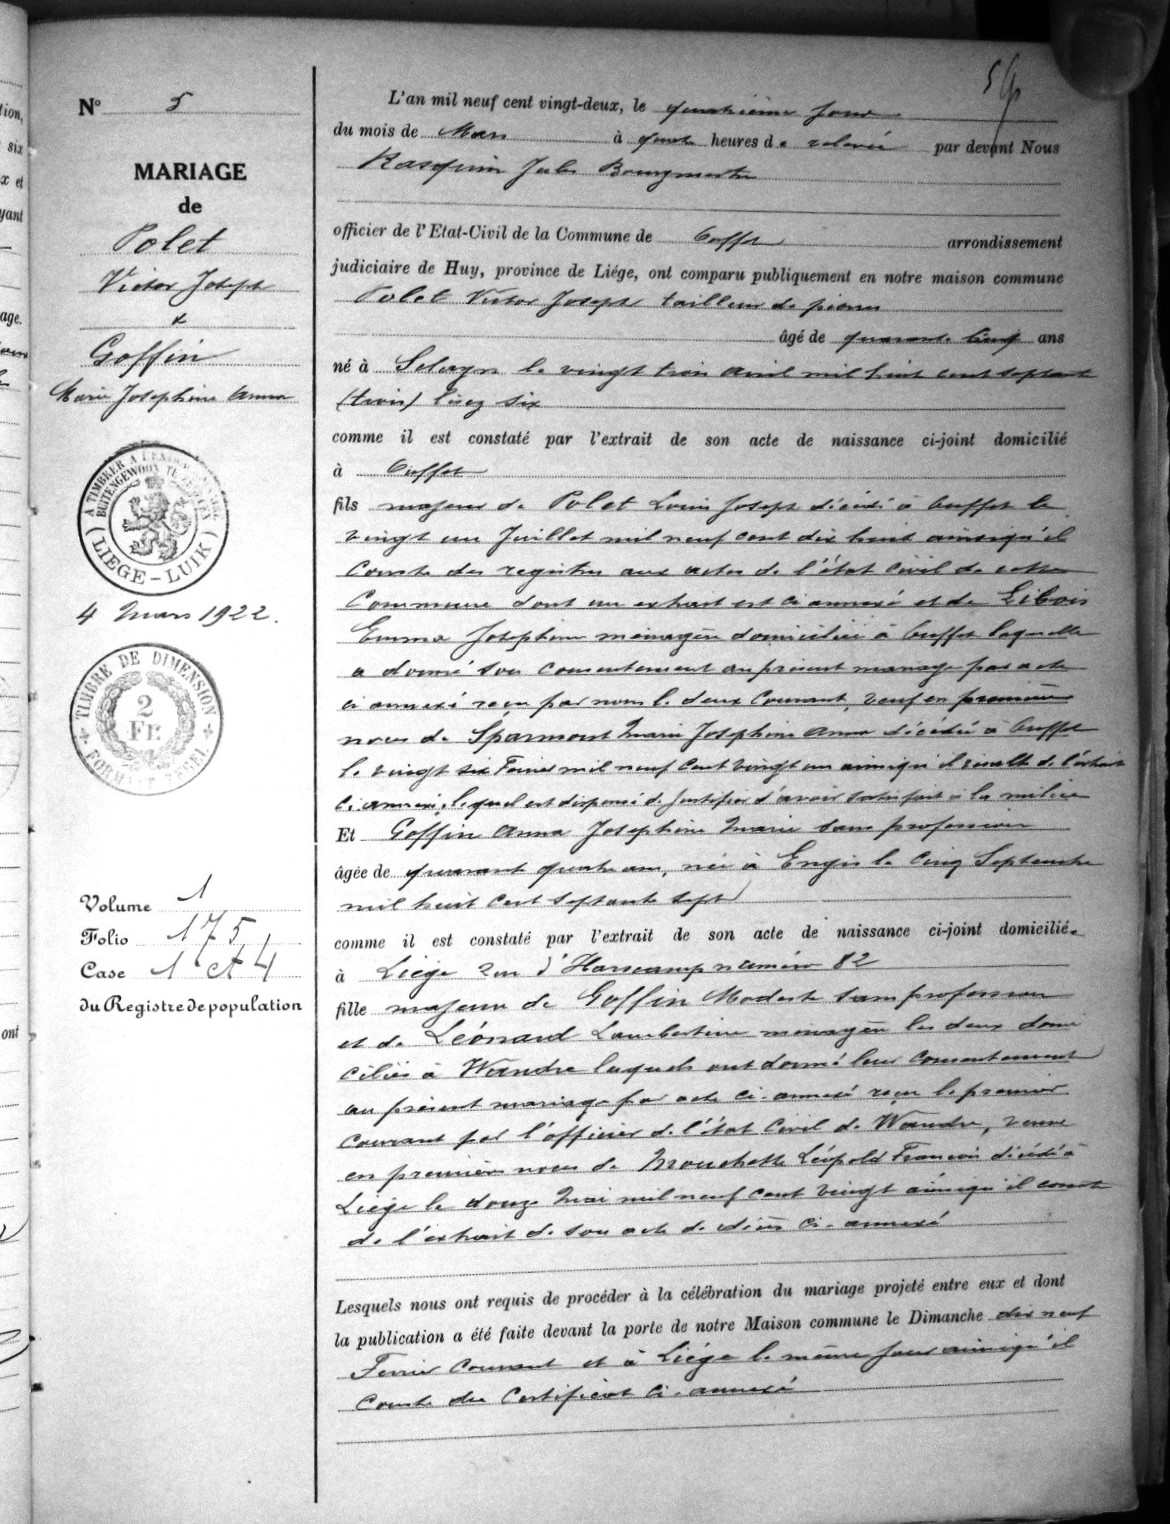 5
N° 5
MARIAGE
de
Polet
Victor Joseph
&
Goffin
Marie Josephine Anna
A TIMBRER A L'EXTRAORDINAIRE
BUITENGEWOON TE ZEGELEN
( LIÉGE - LUIK )
4 Mars 1922.
TIMBRE DE DIMENSION
2
Fr.
FORMAAT ZEGEL
Volume 1
Folio 175
Case 1 et 4
du Registre de population
L'an mil neuf cent vingt-deux, le quatrième jour
du mois de Mars à heures de relevée par devant Nous
Rasquin Jules Bourgmestre
officier de l'Etat-Civil de la Commune de Ouffet arrondissement
judiciaire de Huy, province de Liége, ont comparu publiquement en notre maison commune
Polet Victor Joseph tailleur de pierres
âgé de quarante cinq ans
né à Sclayn le vingt trois avril mil huit cent septante
(trois) lisez six
comme il est constaté par l'extrait de son acte de naissance ci-joint domicilié
à Ouffet
fils majeur de Polet Louis Joseph décédé à Ouffet le
vingt un Juillet mil neuf cent dix huit ainsi qu'il
conste des registres aux actes de l'état civil de cette
Commune dont un extrait est ci annexé et de Libois
Emma Josephine ménagère domiciliée à Ouffet laquelle
a donné son consentement au présent mariage par acte
ci annexé reçu par nous le deux Courant, veuf en premières
noces de Sparmont Marie Josephine Anna décédée à Ouffet
le vingt six Fevrier mil neuf cent vingt un ainsi qu'il résulte de l'extrait
ci annexé, lequel est dispensé de justifier d'avoir satisfait à la milice
Et Goffin Anna Josephine Marie sans profession
âgée de quarante quatre ans, née à Engis le cinq Septembre
mil huit cent septante sept
comme il est constaté par l'extrait de son acte de naissance ci-joint domiciliée
à Liége rue d'Harscamp numéro 82
fille majeure de Goffin Modeste sans profession
et de Léonard Lambertine menagère les deux domi
ciliés à Wandre lesquels ont donné leur consentement
au présent mariage par acte ci-annexé reçu le premier
courant par l'officier de l'état civil de Wandre, veuve
en premières noces de Mouchette Léopold François décédé à
Liége le douze Mai mil neuf cent vingt ainsi qu'il conste
de l'extrait de son acte de décès ci-annexé
Lesquels nous ont requis de procéder à la célébration du mariage projeté entre eux et dont
la publication a été faite devant la porte de notre Maison commune le Dimanche dix neuf
Fevrier Courant et à Liége le même jour ainsi qu'il
conste du Certificat ci-annexé